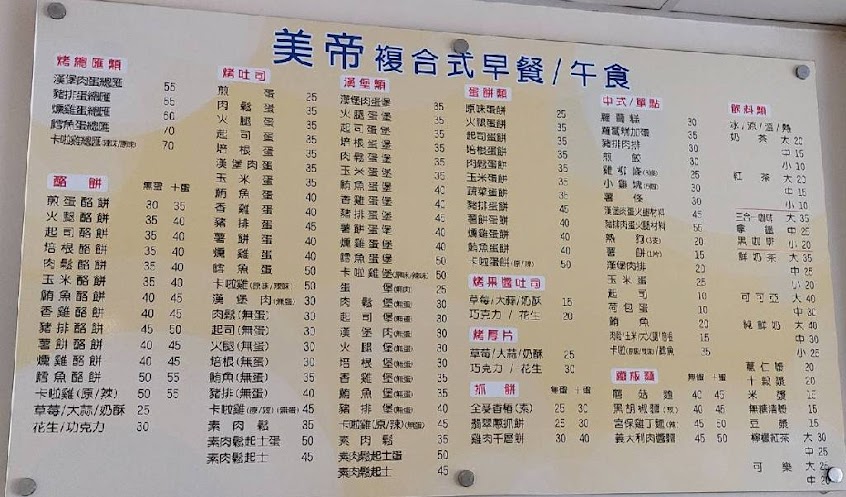 美帝複合式早餐/午食
烤總匯類
漢堡肉蛋總匯 55
豬排蛋總匯 55
燻雞蛋總匯 60
鱈魚蛋總匯 70
卡啦雞總匯(辣味/原味) 70
酪餅 無蛋 十蛋
煎蛋酪餅 30 35
火腿酪餅 35 40
起司酪餅 35 40
培根酪餅 35 40
肉鬆酪餅 35 40
玉米酪餅 35 40
鮪魚酪餅 40 45
香雞酪餅 40 45
豬排酪餅 45 50
薯餅酪餅 40 45
燻雞酪餅 40 45
鱈魚酪餅 50 55
卡啦雞(原/辣) 50 55
草莓/大蒜/奶酥 25
花生/巧克力 30
烤吐司
煎蛋 25
肉鬆蛋 35
火腿蛋 35
起司蛋 35
培根蛋 35
漢堡肉蛋 35
玉米蛋 35
鮪魚蛋 35
香雞蛋 40
豬排蛋 45
薯餅蛋 40
燻雞蛋 40
鱈魚蛋 50
卡啦雞(原味/辣味) 50
漢堡肉(無蛋) 30
肉鬆(無蛋) 30
起司(無蛋) 30
火腿(無蛋) 30
培根(無蛋) 30
鮪魚(無蛋) 35
豬排(無蛋) 40
卡啦雞(原/辣)(無蛋) 45
素肉鬆 35
素肉鬆起士蛋 50
素肉鬆起士 45
漢堡類
漢堡肉蛋堡 35
火腿蛋堡 35
起司蛋堡 35
培根蛋堡 35
肉鬆蛋堡 35
玉米蛋堡 35
鮪魚蛋堡 40
香雞蛋堡 40
豬排蛋堡 45
薯餅蛋堡 40
燻雞蛋堡 40
鱈魚蛋堡 50
卡啦雞堡(原味/辣味) 50
蛋堡 25
肉鬆堡(無蛋) 30
起司堡(無蛋) 30
漢堡肉(無蛋) 30
火腿堡(無蛋) 30
培根堡(無蛋) 30
香雞堡(無蛋) 35
鮪魚堡(無蛋) 35
豬排堡(無蛋) 40
卡啦雞(原/辣)(無蛋) 45
素肉鬆 35
素肉鬆起士蛋 50
素肉鬆起士 45
蛋餅類
原味蛋餅 25
火腿蛋餅 35
起司蛋餅 35
培根蛋餅 35
肉鬆蛋餅 35
玉米蛋餅 35
蔬菜蛋餅 35
豬排蛋餅 45
薯餅蛋餅 40
燻雞蛋餅 40
鮪魚蛋餅 40
卡啦蛋餅(原/辣) 50
烤果醬吐司
草莓/大蒜/奶酥 15
巧克力/花生 20
烤厚片
草莓/大蒜/奶酥 25
巧克力/花生 30
抓餅 無蛋 十蛋
全麥香椿(素) 25 30
翡翠蔥抓餅 25 30
雞肉千層餅 30 40
中式/單點
蘿蔔糕 30
蘿蔔糕加蛋 35
豬排肉排 35
煎餃 30
薯條 30
漢堡肉蛋火腿材料 45
豬排肉蛋火腿材料 55
熱狗(3支) 20
薯餅(1片) 15
漢堡肉排 20
玉米蛋 25
起司 10
荷包蛋 10
鮪魚 20
35
鐵板麵 無蛋 十蛋
蘑菇麵 40 45
黑胡椒麵(辣) 40 45
宮保雞丁麵(辣) 45 50
義大利肉醬麵 45 50
飲料類
冰/涼/溫/熱
奶茶 大 20
中 15
小 10
紅茶 大 20
中 15
小 10
三合一咖啡 大 35
拿鐵 中 25
黑咖啡 小 20
鮮奶茶 大 35
中 25
可可亞 大 40
中 30
純鮮奶 大 40
中 30
小 25
薏仁漿 15
十穀漿 15
米漿 15
無糖清漿 15
豆漿 15
檸檬紅茶 大 30
中 25
可樂 大 25
中 20